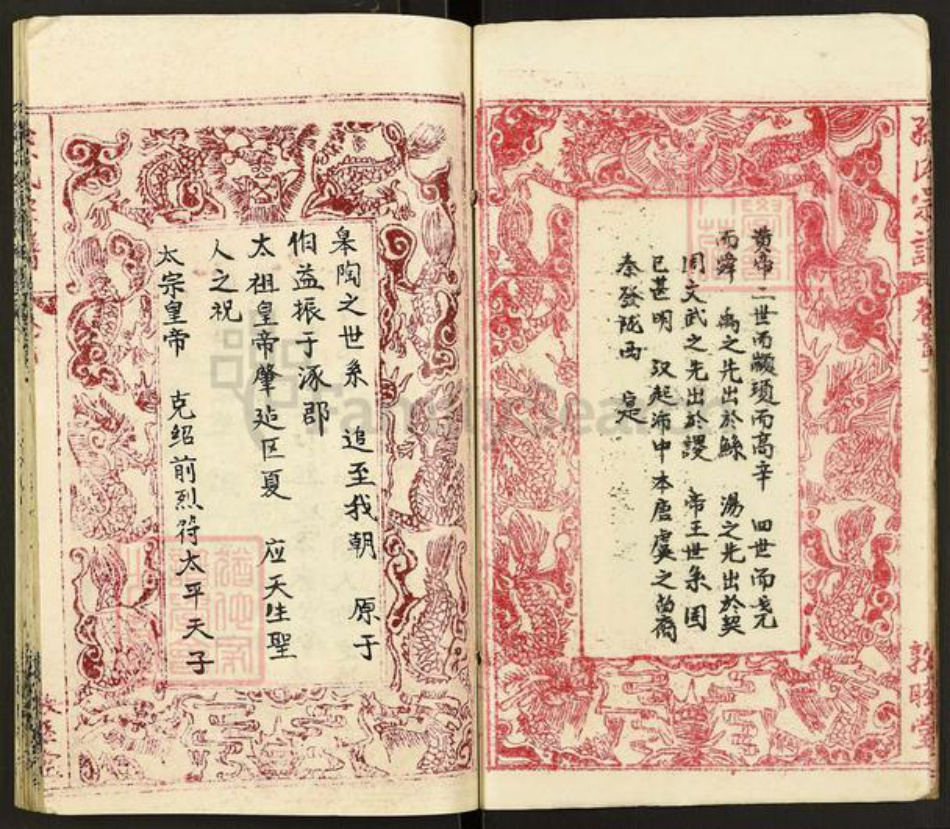 黄帝 二世而颛顼而高辛 四世而尧
而舜 禹之先出於鲧 汤之先出於契
周文武之先出於稷 帝王世系固
已甚明 汉起沛中本唐虞之苗裔
秦發陇西 寔
皋陶之世系 追至我朝 原于
伯益振于涿郡
太祖皇帝肇造区夏 应天生聖
人之祝
太宗皇帝 克绍前烈符太平天子
孫氏宗譜
FamilySearch